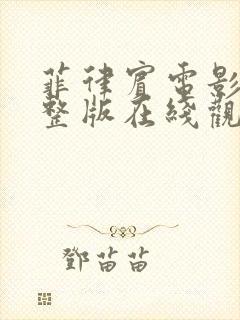 菲律賓電影
整版在綫觀
鄧苗苗